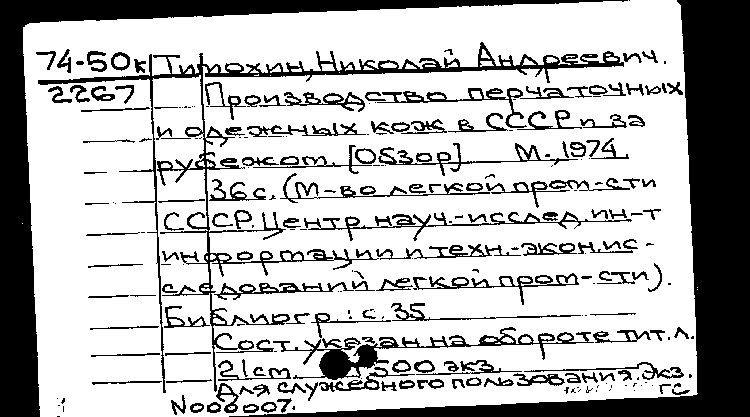 74-50к Тимохин, Николай Андреевич.
2267 Производство перчаточных
и одежных кож в СССР и за
рубежом. [Обзор] М., 1974
36 с. (М-во легкой пром-сти
СССР. Центр. науч.-исслед. ин-т
информации и техн.-экон. ис-
следований легкой пром-сти).
Библиогр.: с. 35
Сост. указан на обороте тит. л.
21 см. 500 экз.
Для служебного пользования. Экз.
N000007. ГС